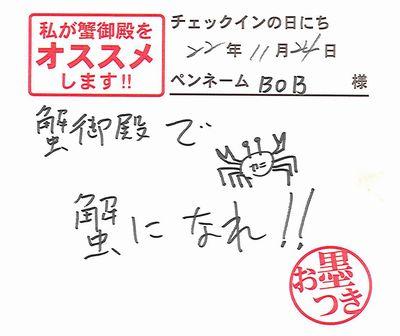 私が蟹御殿を
オススメ
します!!
チェックインの日にち
22年11月24日
ペンネーム BOB 様
蟹御殿で
蟹になれ!!
お墨つき